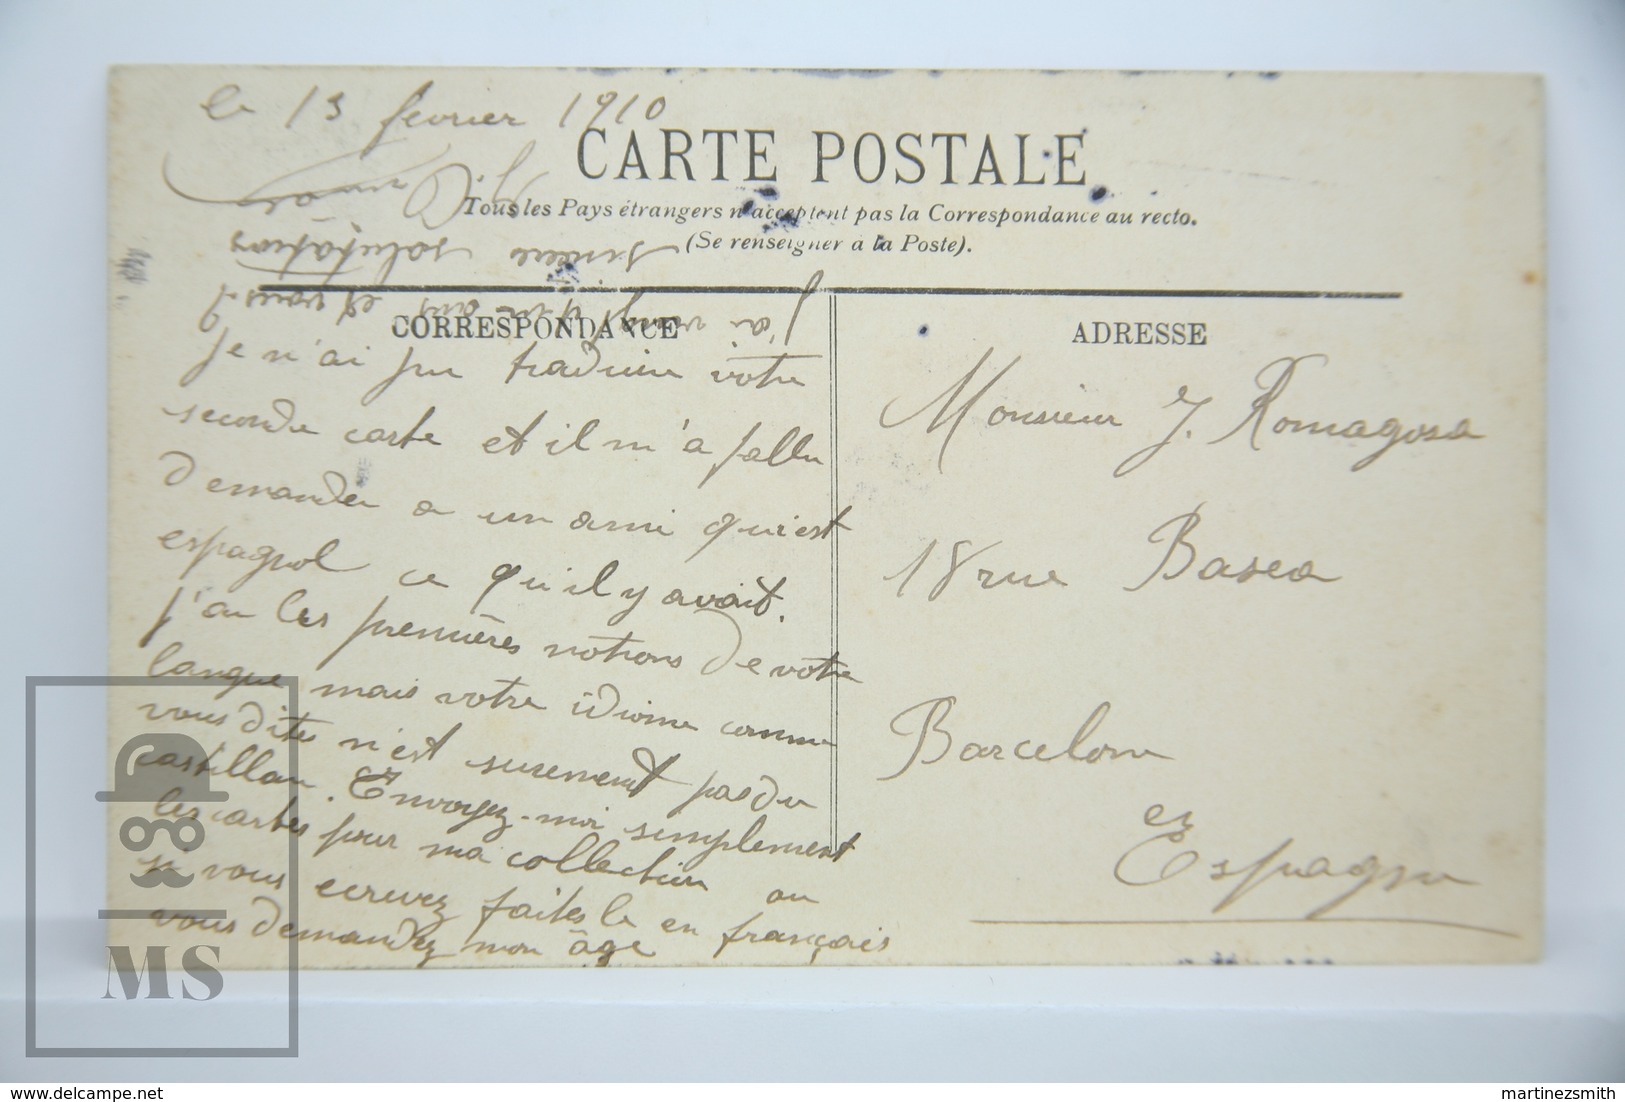 le 13 février 1910
CARTE POSTALE
Tous les Pays étrangers n'acceptent pas la Correspondance au recto.
(Se renseigner à la Poste).
CORRESPONDANCE
Je n'ai pu traduire votre
seconde carte et il m'a fallu
demander a un ami qui est
espagnol ce qu'il y avait.
j'ai les premières notions de votre
langue mais votre idiome comme
vous dites n'est surement pas du
castillan. Envoyez-moi simplement
les cartes pour ma collection ou
si vous ecrivez faites le en français
vous demandez mon âge
J'ai vingt et un ans et vous?
sincères salutations
ADRESSE
Monsieur J. Romagosa
18 rue Basea
Barcelone
en
Espagne
MS
martinezsmith - delcampe.net